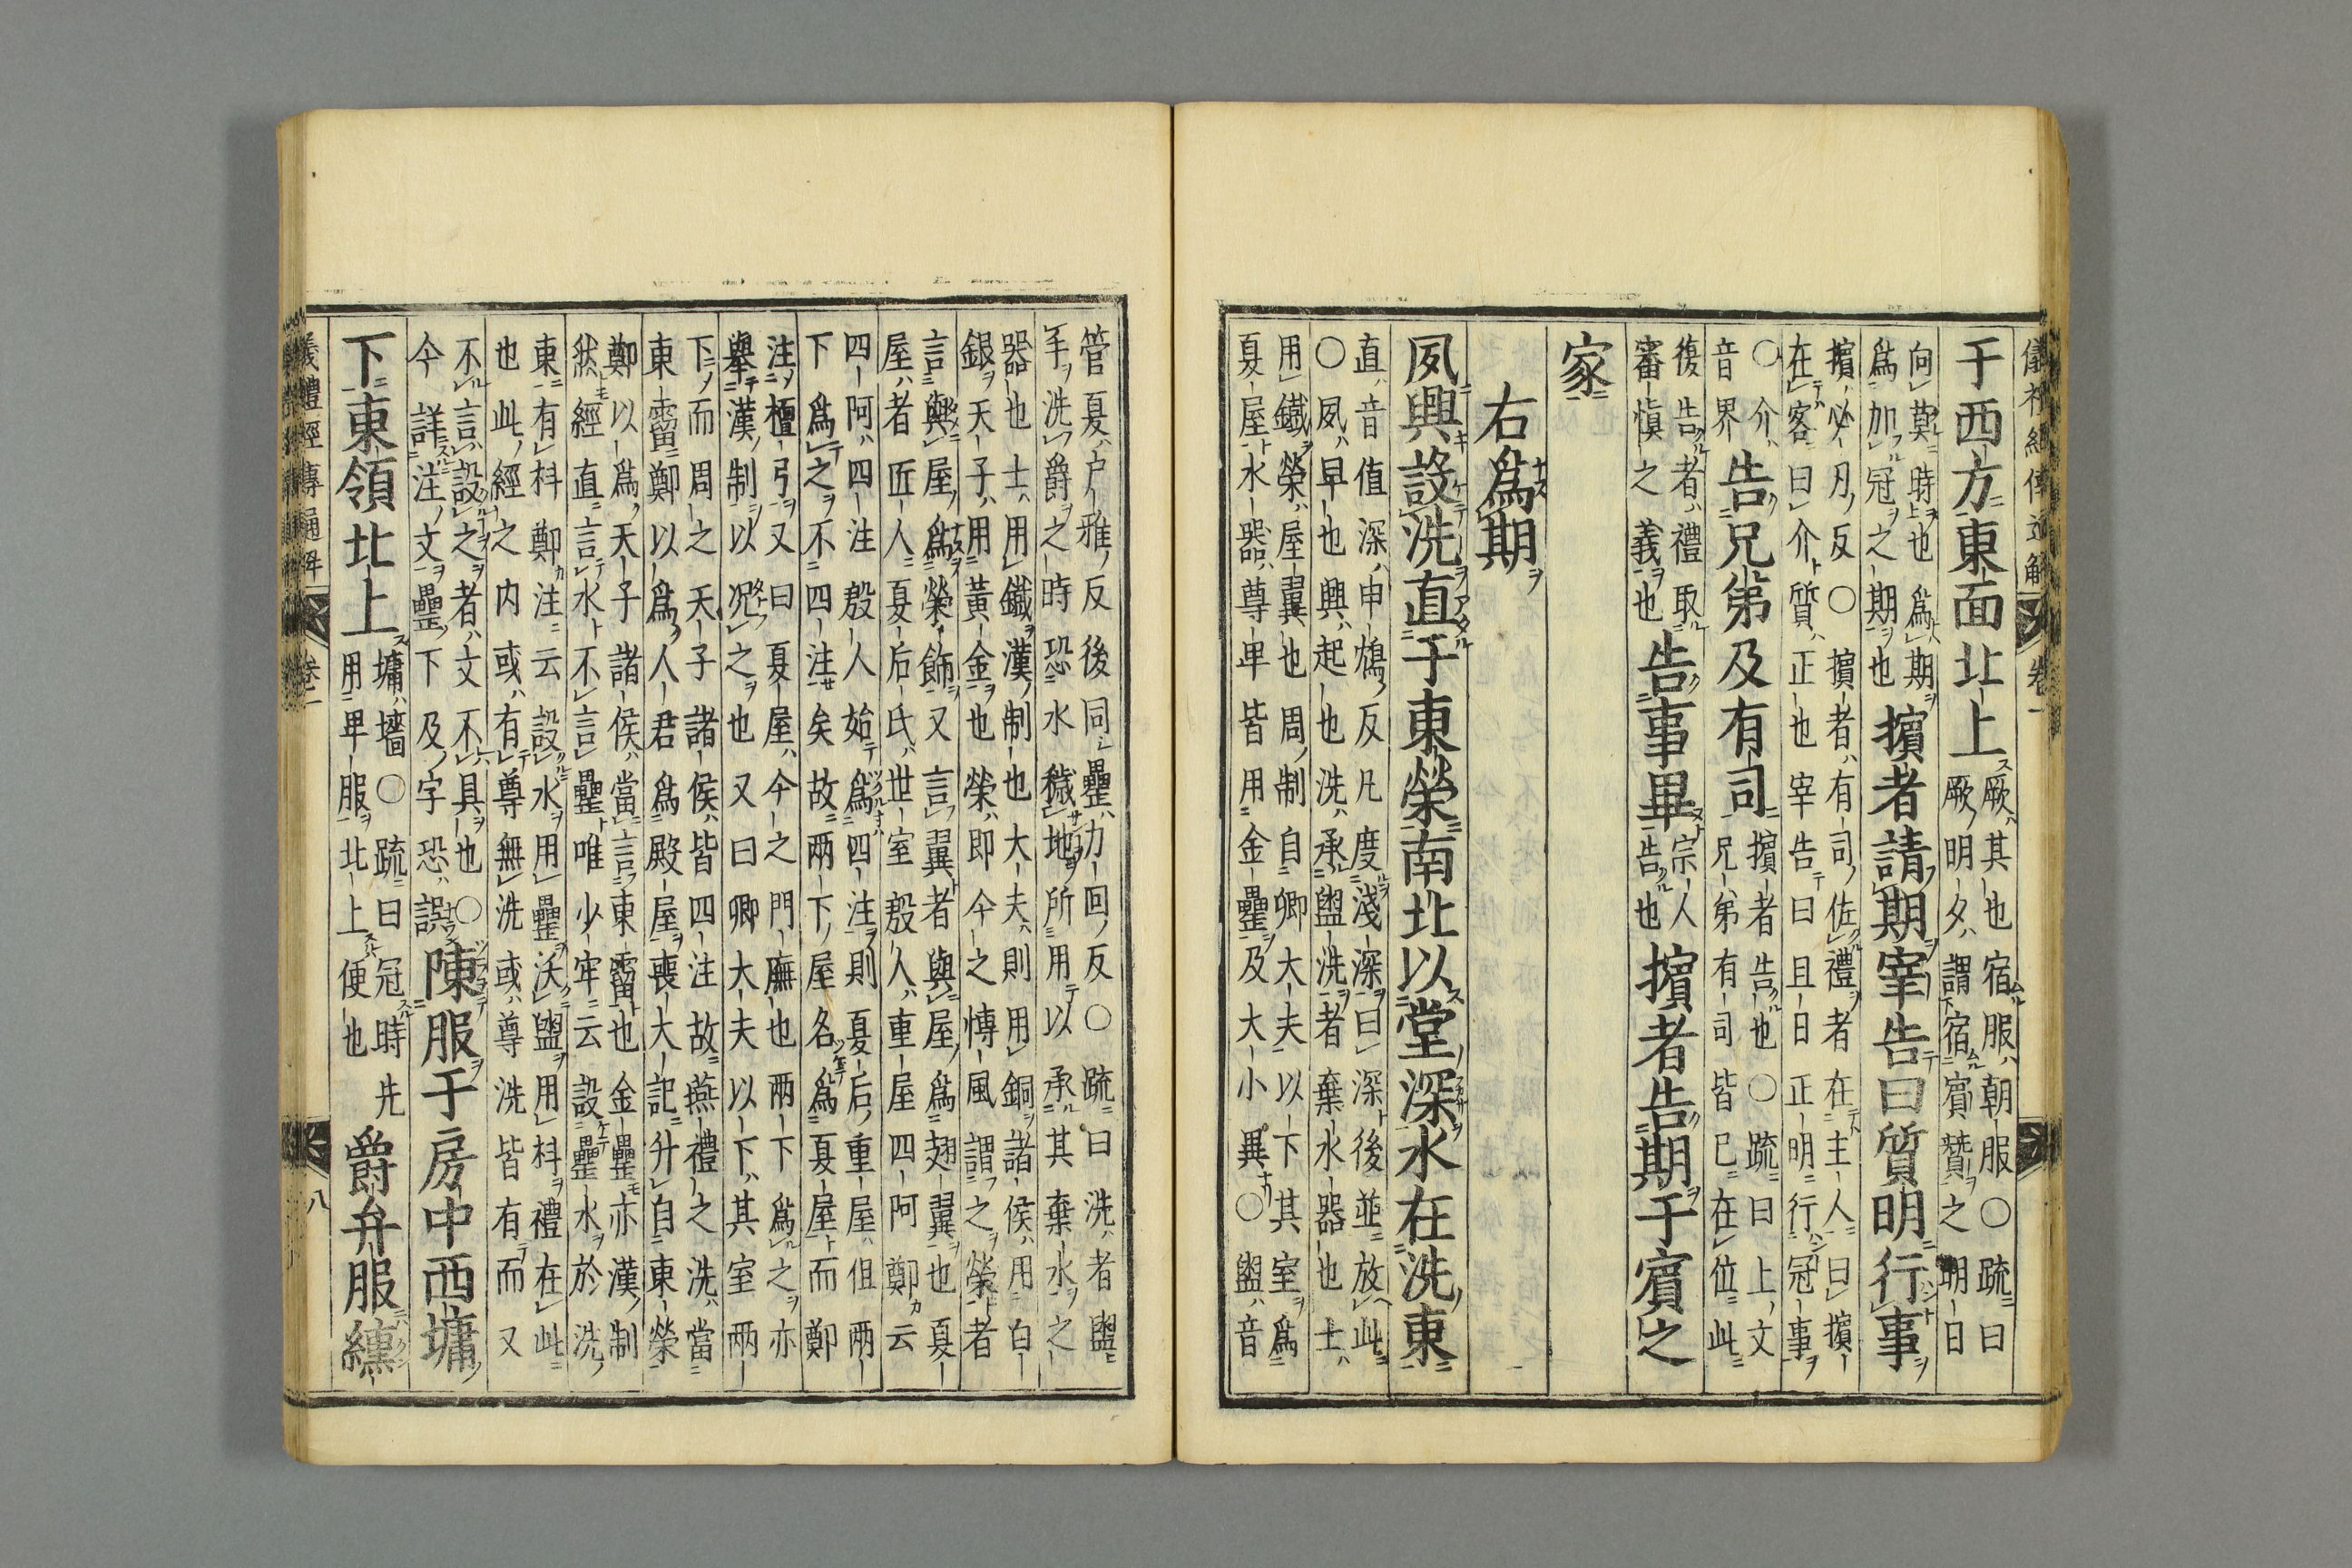 儀礼經傳通解 卷一
于西方東面北上
厥其也宿服朝服○疏曰
厥明夕謂宿賓贊之明日
向莫時也爲期
爲加冠之期也
擯者請期宰告曰質明行事
擯必刃反○擯者有司佐禮者在主人曰擯
在客曰介質正也宰告曰旦日正明行冠事
○介
音界
告兄弟及有司
擯者告也○疏曰上文
兄弟有司皆已在位此
復告者禮取
審慎之義也
告事畢
宗人
告也
擯者告期于賓之
家
右爲期
夙興設洗直于東榮南北以堂深水在洗東
直音值深申鴆反凡度淺深曰深後並放此
○夙早也興起也洗承盥洗者棄水器也士
用鐵榮屋翼也周制自卿大夫以下其室爲
夏屋水器尊卑皆用金罍及大小異○盥音
管夏户雅反後同罍力回反○疏曰洗者盥
手洗爵之時恐水穢地所用以承其棄水之
器也士用鐵漢制也大夫則用銅諸侯用白
銀天子用黃金也榮即今之博風謂之榮者
言與屋爲榮飾又言翼者與屋爲翅翼也夏
屋者匠人夏后氏世室殷人重屋四阿鄭云
四阿四注殷人始爲四注則夏后重屋但兩
下爲之不四注矣故兩下屋名爲夏屋而鄭
注檀弓又曰夏屋今之門廡也兩下爲之亦
舉漢制以況之也又曰卿大夫以下其室兩
下而周之天子諸侯皆四注故燕禮之洗當
東霤鄭以爲人君爲殿屋喪大記升自東榮
鄭以爲天子諸侯當言東霤也金罍亦漢制
然經直言水不言罍唯少牢云設罍水於洗
東有枓鄭注云設水用罍沃盥用枓禮在此
也此經之内或有尊無洗或尊洗皆有而又
不言設之者文不具也○
今詳注文罍下及字恐誤
陳服于房中西墉
下東領北上
墉墻○疏曰冠時先
用卑服北上便也
爵弁服纁
儀禮經傳通解 卷一 八